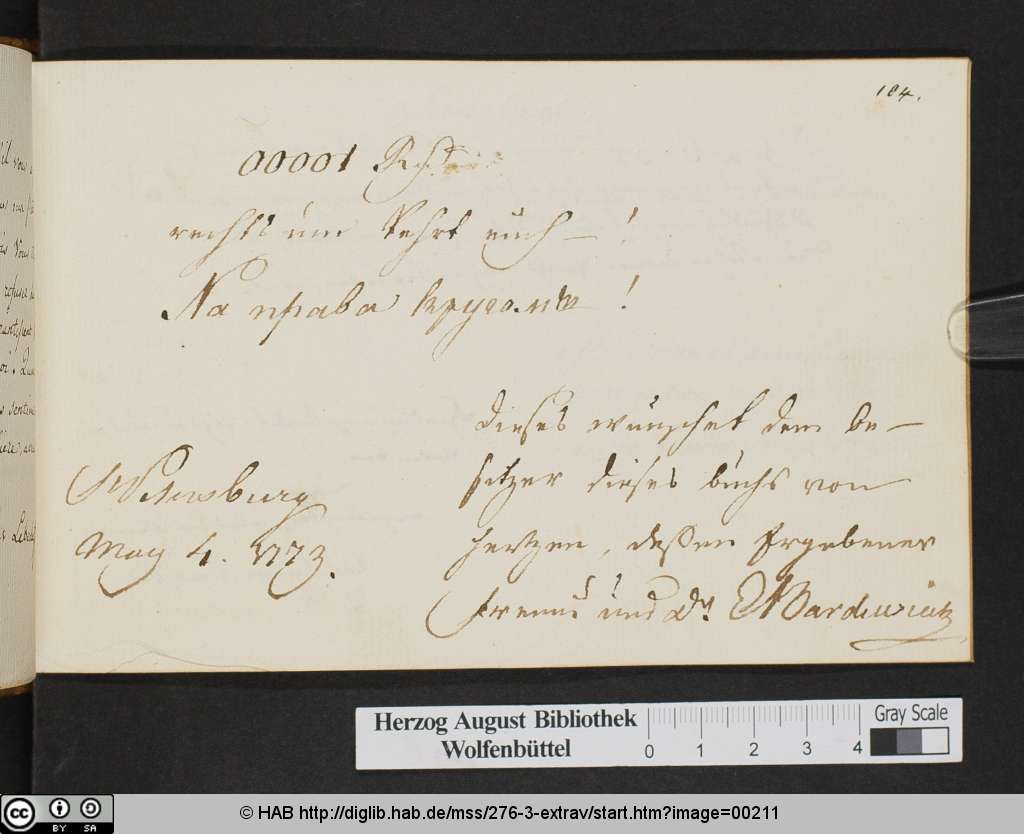 184.
00001 Rth
rechts um kehrt euch – !
На права кругомъ !
dieses wünschet dem be-
sitzer dieses buchs von
hertzen, deßen Ergebener
Freund und Dr. Bardewick
St Petersburg
May 4. 1773.
Herzog August Bibliothek
Wolfenbüttel
0 1 2 3 4
Gray Scale
cc BY SA
© HAB http://diglib.hab.de/mss/276-3-extrav/start.htm?image=00211